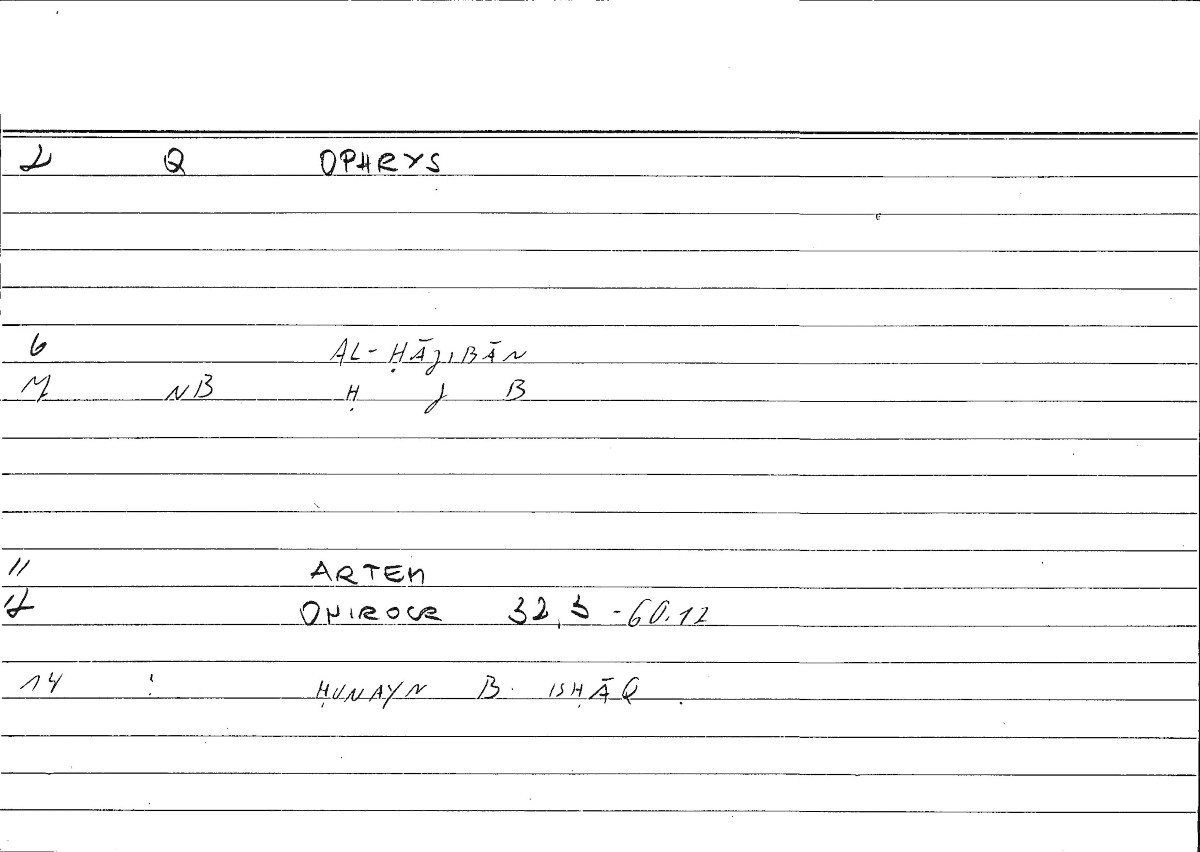 2 Q OPHRYS
6 AL-ḤĀJIBĀN
7 NB Ḥ J B
11 ARTEM
12 ONIROCR 32,3 -60.12
14 : ḤUNAYN B. ISḤĀQ.